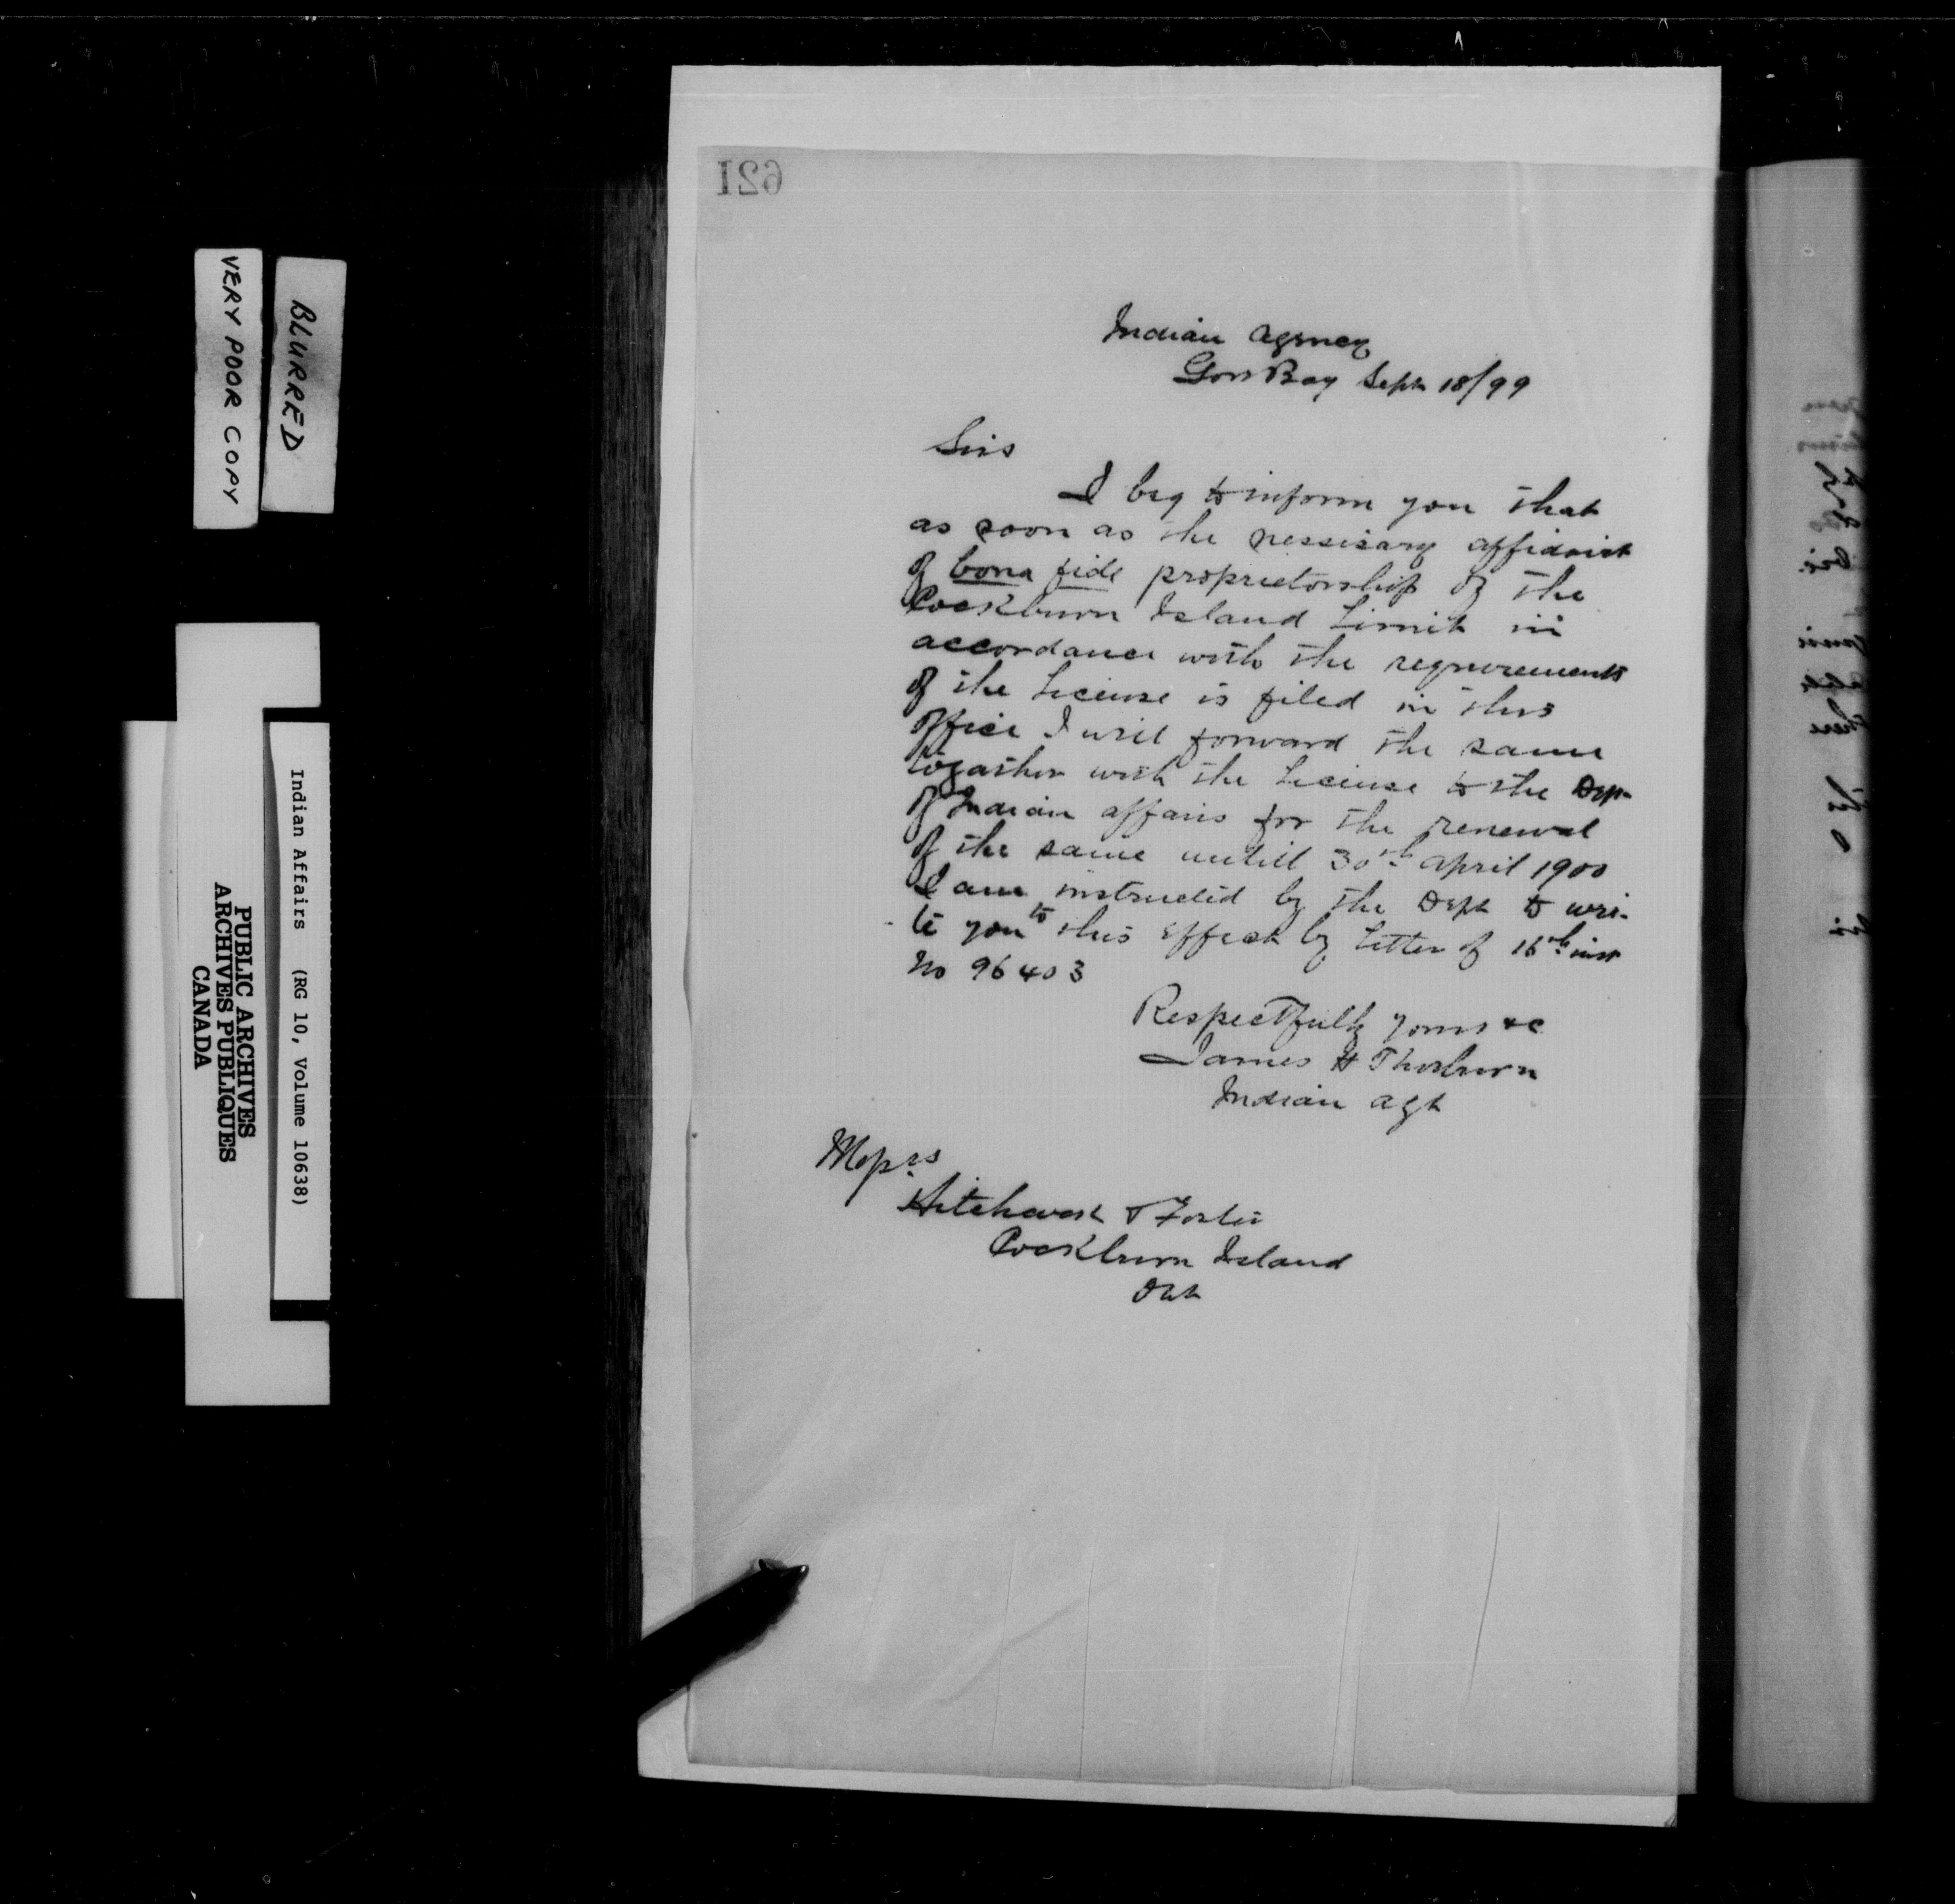 VERY POOR COPY
BLURRED
Indian Affairs (RG 10, Volume 10638)
PUBLIC ARCHIVES
ARCHIVES PUBLIQUES
CANADA
621
Indian Agency
Gore Bay Sept 18/99
Sirs
I beg to inform you that
as soon as the nessisary affidavit
of bona fide proprietorship of the
Cockburn Island Limit in
accordance with the requirements
of the License is filed in this
office I will forward the same
togather with the License to the Dep-
of Indian affairs for the renewal
of the same untill 30th april 1900
I am instructed by the Dept to wri-
te you to this effect by letter of 16th inst
No 96403
Respectfully yours &c
James H Thorburn
Indian Agt
Messrs
& Foster
Cockburn Island
Ont